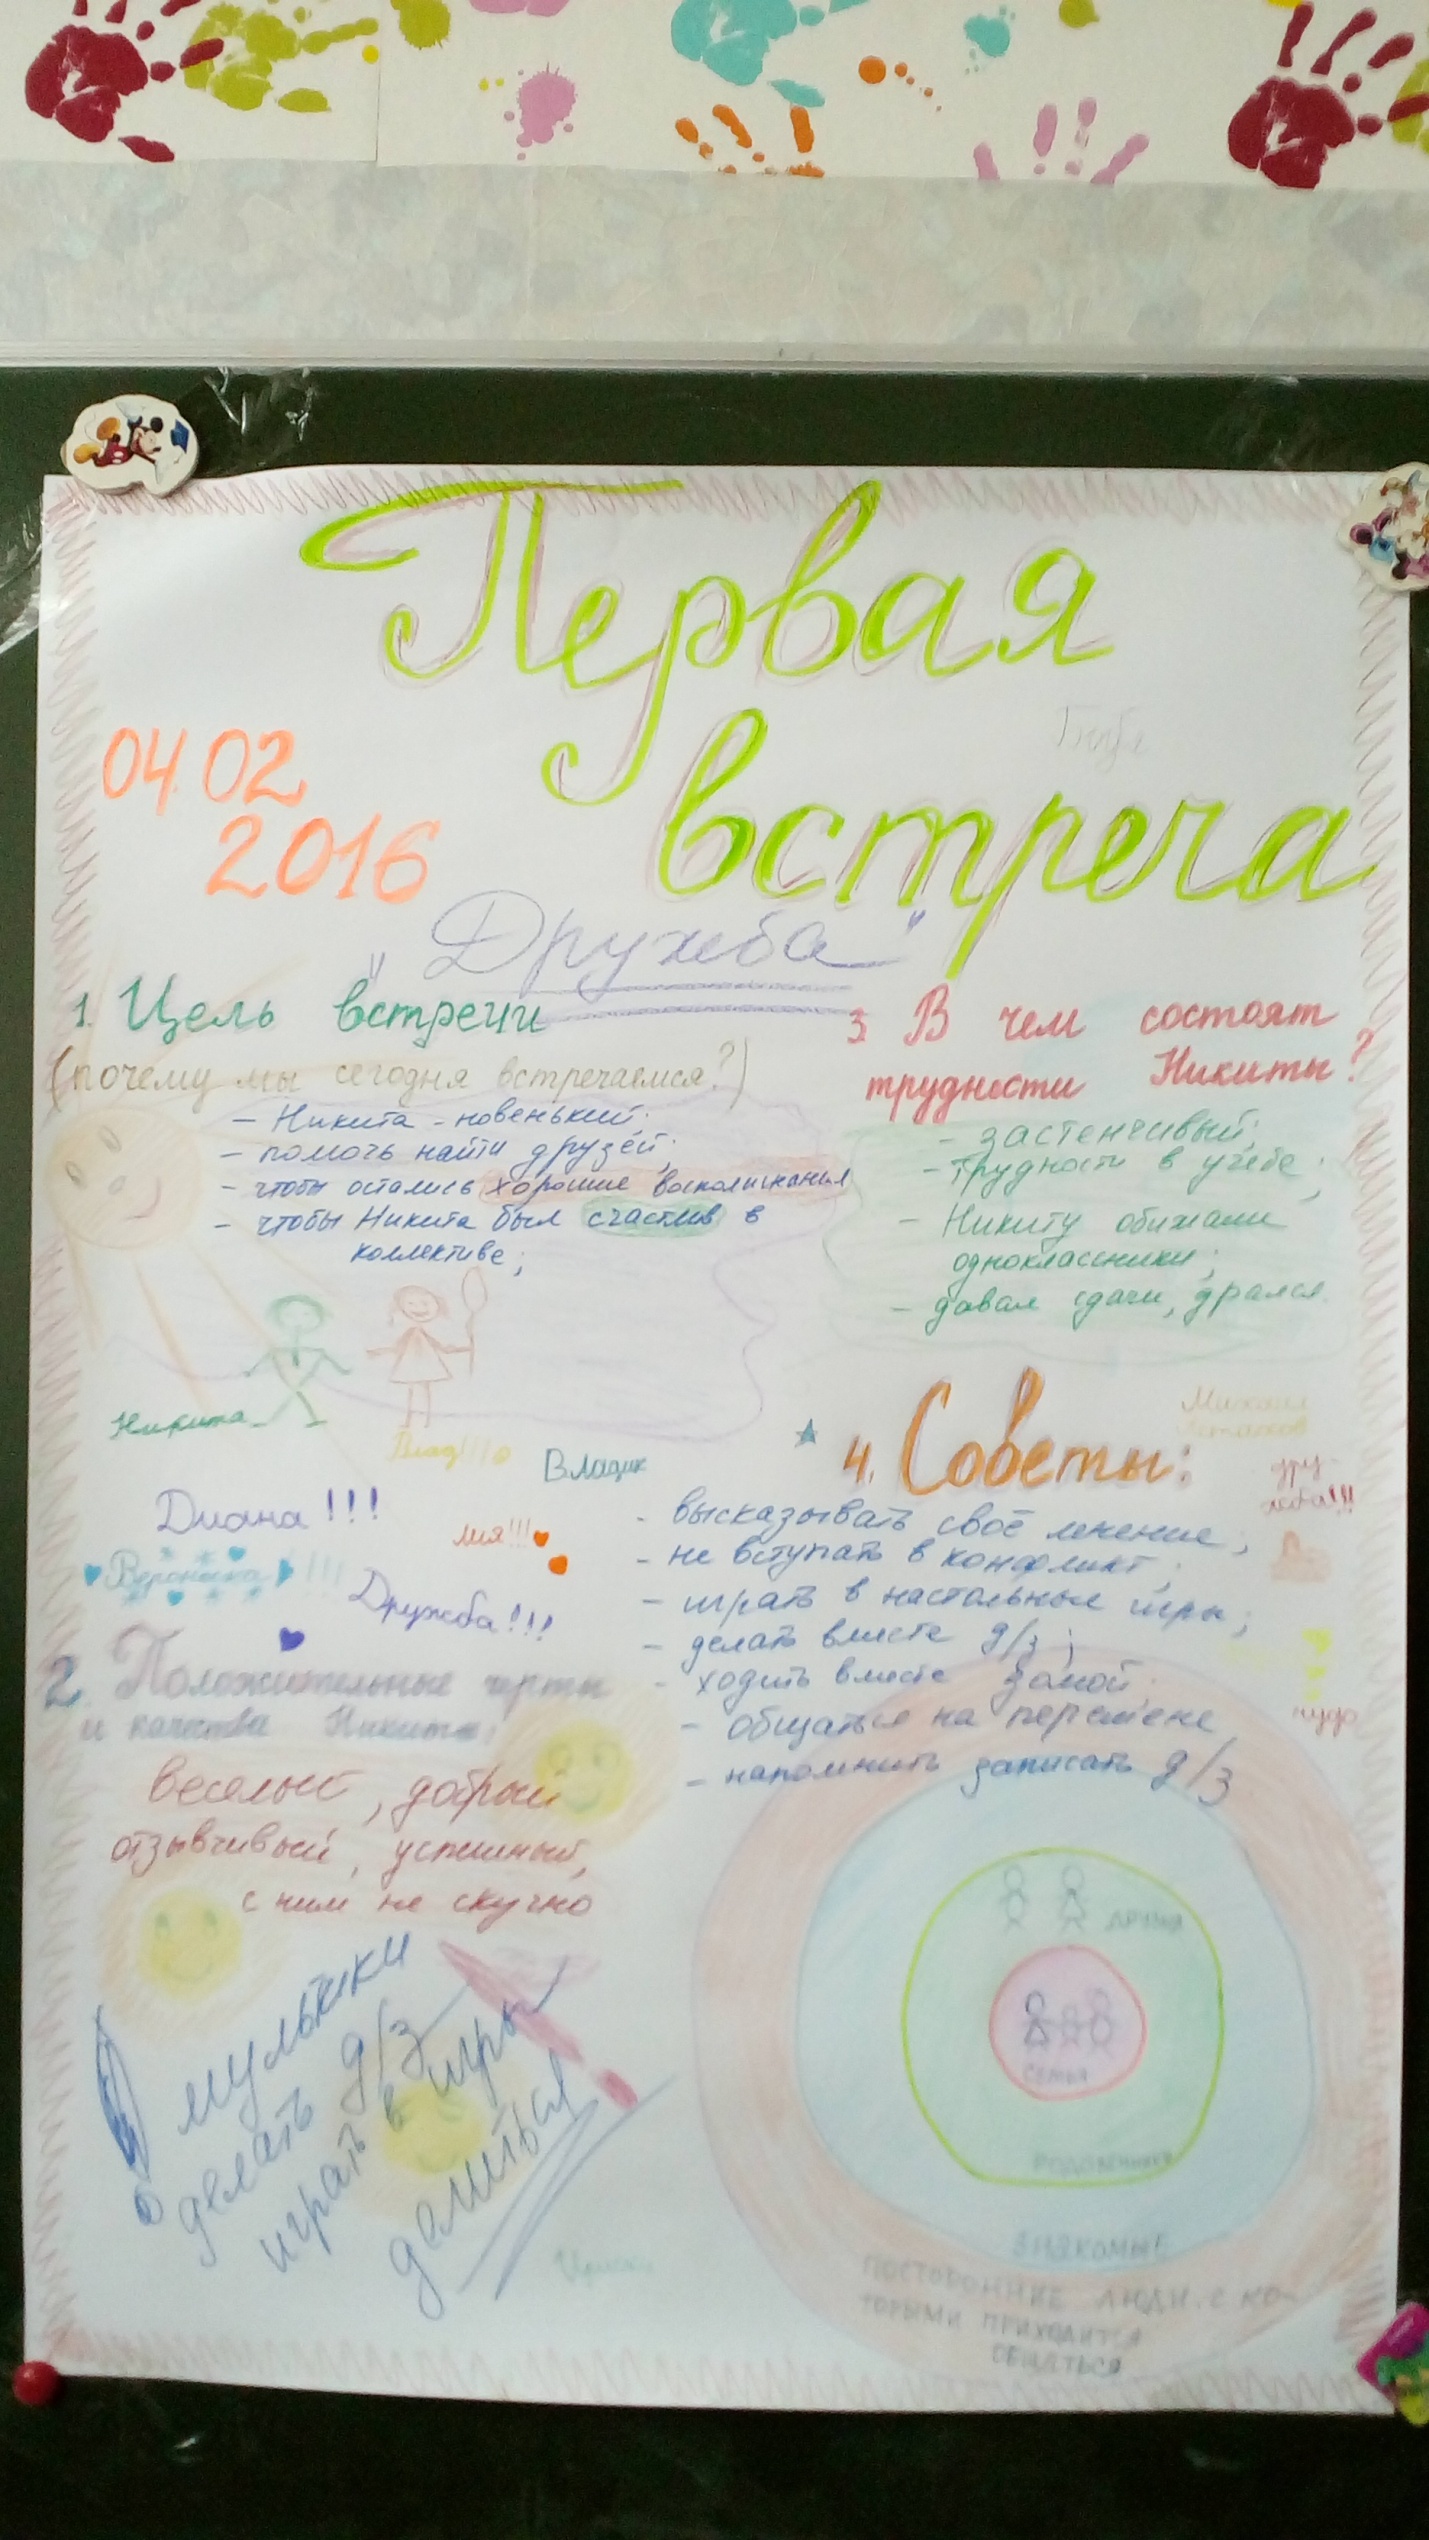 Первая
встреча
04.02
2016
"Дружба"
1. Цель встречи
(почему мы сегодня встречаемся?)
- Никита - новенький;
- помочь найти друзей;
- чтобы остались хорошие воспоминания
- чтобы Никита был счастлив в
коллективе;
Никита
Влад!!!
Владик
Диана!!!
Лия!!!
Вероника!!!
Дружба!!!
2. Положительные черты
и качества Никиты:
веселый, добрый
отзывчивый, успешный,
с ним не скучно
мультики
делать д/з
играть в игры
делиться
3. В чем состоят
трудности Никиты?
- застенчивый;
- трудности в учебе;
- Никиту обижали
одноклассники;
- давал сдачи, дрался.
4. Советы:
Михаил
дру-
жба!!!
- высказывать своё мнение;
- не вступать в конфликт;
- играть в настольные игры;
- делать вместе д/з;
- ходить вместе домой.
- общаться на перемене
- напомнить записать д/з
чудо
ДРУЗЬЯ
СЕМЬЯ
РОДСТВЕННИКИ
ЗНАКОМЫЕ
ПОСТОРОННИЕ ЛЮДИ, С КО-
ТОРЫМИ ПРИХОДИТСЯ
ОБЩАТЬСЯ